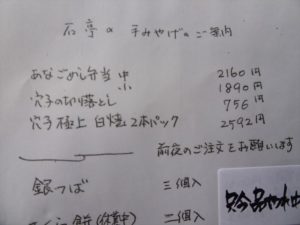 石亭の手みやげのご案内
あなごめし弁当 中 2160円
小 1890円
穴子の切り落とし 756円
穴子 極上 白焼 2本パック 2592円
前夜のご注文をお願いします
銀つば 三個入
餅(休業中) 二個入
只今品切れ中